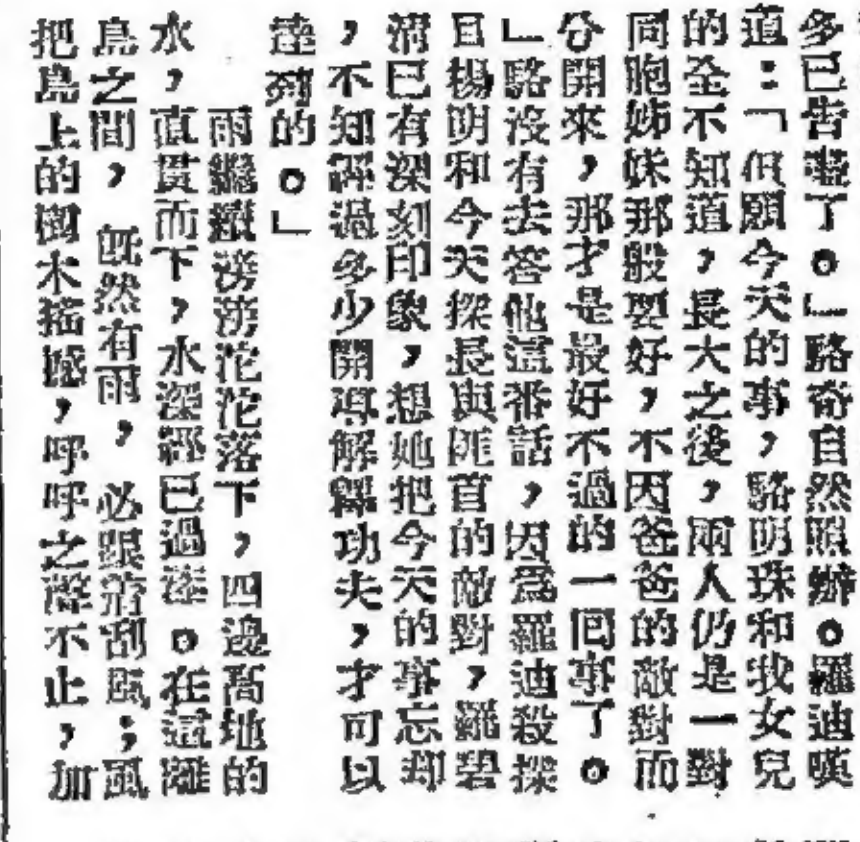 多已告嚥了。」駱奇自然照辦。羅迪嘆
道：「但願今天的事，駱明珠和我女兒
的全不知道，長大之後，兩人仍是一對
同胞姊妹那般要好，不因爸爸的敵對而
分開來，那才是最好不過的一回事了。
」駱沒有去答他這番話，因爲羅迪殺探
目楊明和今天探長與匪首的敵對，羅碧
沼已有深刻印象，想她把今天的事忘却
，不知經過多少開導解釋功夫，才可以
達到的。」
雨繼續滂滂沱沱落下，四邊高地的
水，直貫而下，水深經已過膝。在這離
島之間，既然有雨，必跟着刮風；風
把島上的樹木搖撼，呼呼之聲不止，加